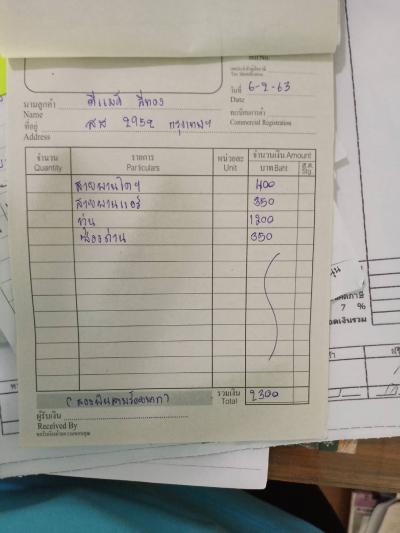 เลขประจำตัวผู้เสียภาษี
Tax Identification
นามลูกค้า
Name
วันที่ 6-2-63
Date
ที่อยู่ สส 2952 กรุงเทพฯ
Address
ทะเบียนการค้า
Commercial Registration
จำนวน
Quantity
รายการ
Particulars
หน่วยละ
Unit
จำนวนเงิน Amount
บาท Baht
ส.ต. Stg.
สายพานไดฯ 400
สายพานแอร์ 350
1200
350
(สองพันสามร้อยบาท)
รวมเงิน
Total
2300
ผู้รับเงิน
Received By
7 %